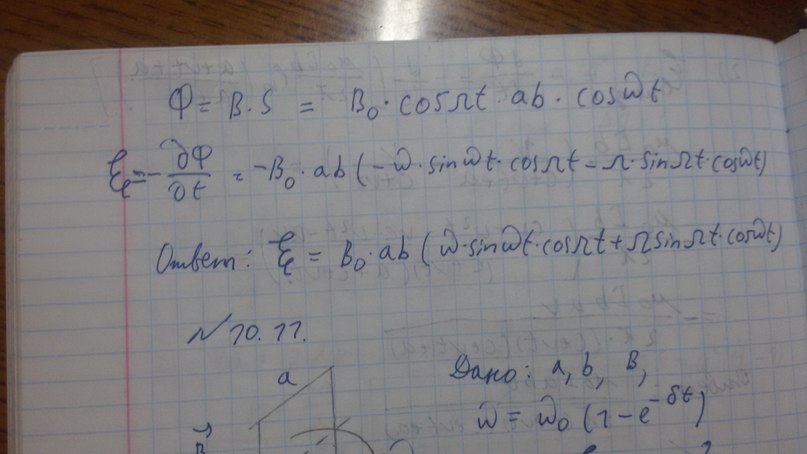 Φ = B · S = B₀ · cos Ωt · ab · cos ωt
ξ = - ∂Φ/∂t = -B₀ · ab (-ω · sin ωt · cos Ωt - Ω · sin Ωt · cos ωt)
Ответ: ξ = B₀ · ab (ω · sin ωt · cos Ωt + Ω sin Ωt · cos ωt)
№ 10.11.
a
Дано: a, b, B,
ω = ω₀ (1 - e^(-δt))